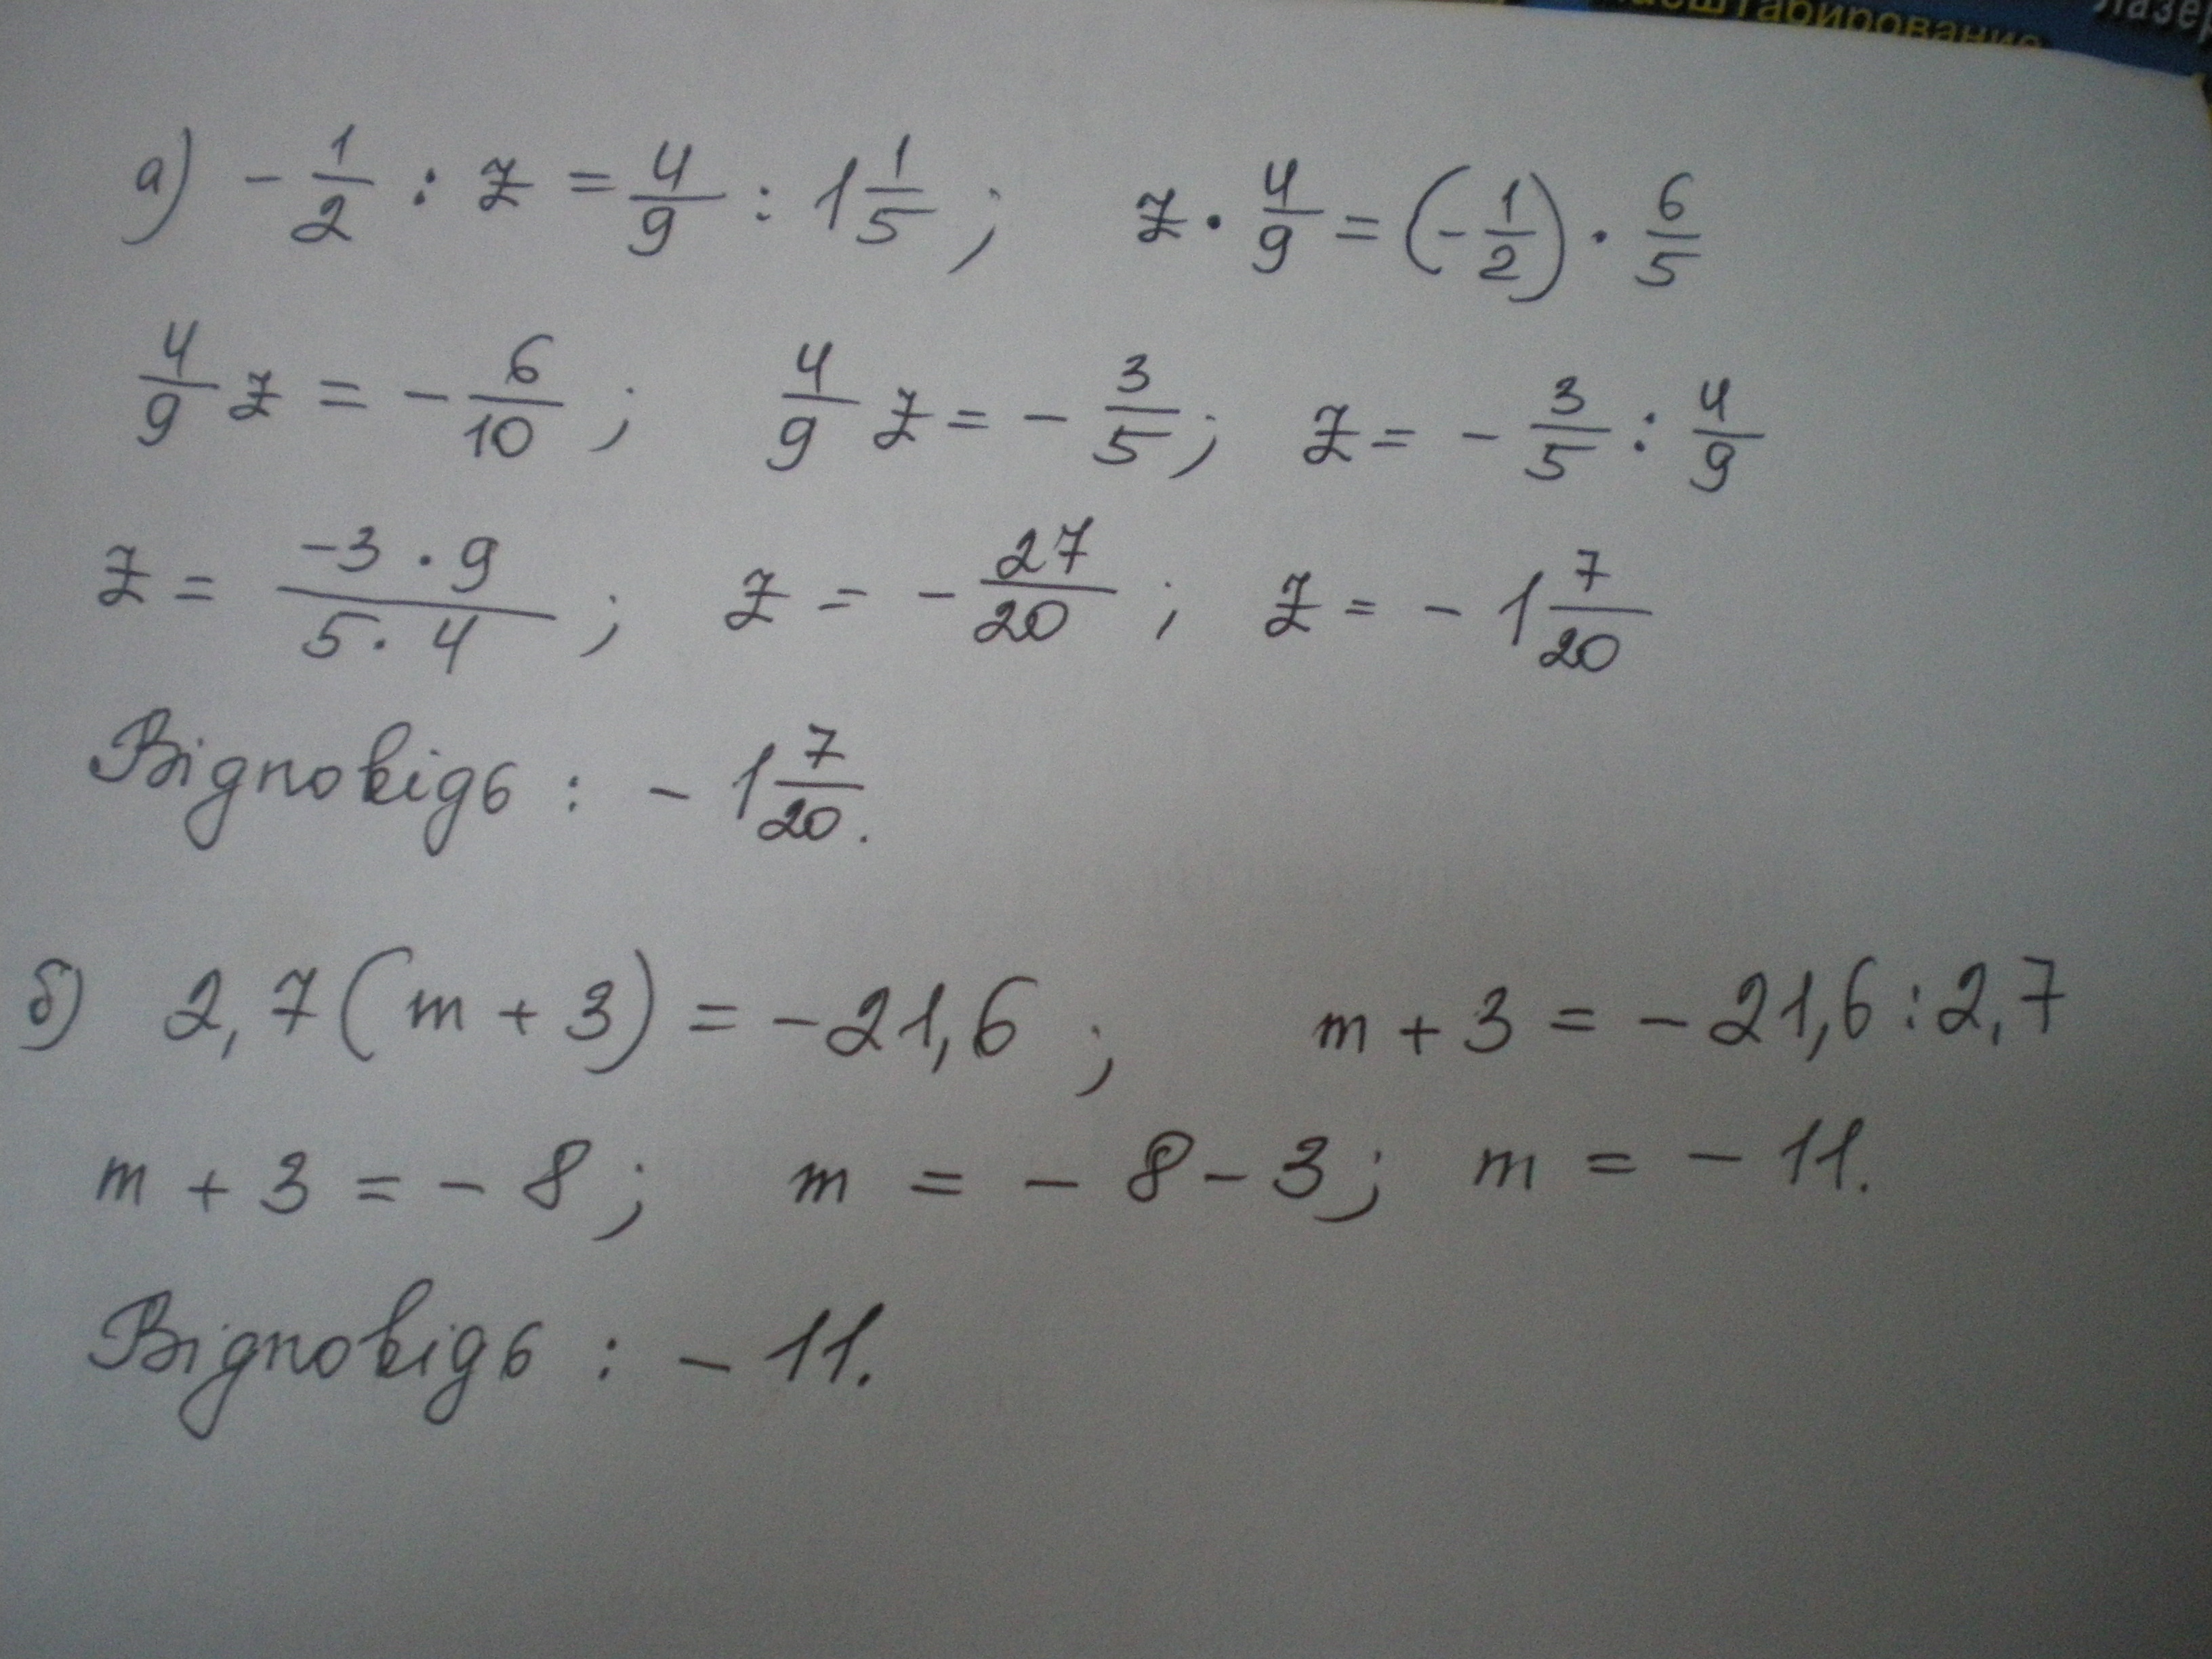 масштабирование
Лазер
а) -1/2 : z = 4/9 : 1 1/5 ; z · 4/9 = (-1/2) · 6/5
4/9 z = - 6/10 ; 4/9 z = - 3/5 ; z = - 3/5 : 4/9
z = -3 · 9 / 5 · 4 ; z = - 27/20 ; z = - 1 7/20
Відповідь : - 1 7/20 .
б) 2,7 ( m + 3 ) = -21,6 ; m + 3 = - 21,6 : 2,7
m + 3 = - 8 ; m = - 8 - 3 ; m = - 11.
Відповідь : - 11.